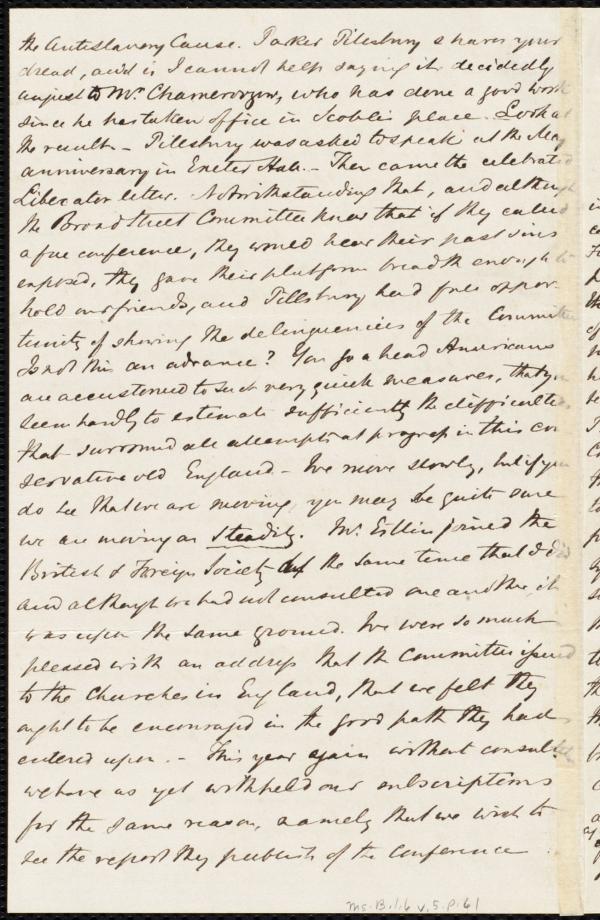 the Antislavery Cause. Parker Pillsbury shares your
dread, and is I cannot help saying it decidedly
unjust to Mr Chamerovzow, who has done a good work
since he has taken office in Scoble's place. Look at
the result - Pillsbury was asked to speak at the May
anniversary in Exeter Hall. - Then came the celebrated
Liberator letter. Notwithstanding that, and although
the Broad Street Committee knew that if they called
a free conference, they would hear their past sins
exposed, they gave their platform breadth enough to
hold our friends, and Pillsbury had free oppor-
tunity of showing the delinquencies of the Committee
Is not this an advance? You go a head Americans
are accustomed to such very quick measures, that you
seem hardly to estimate sufficiently the difficulties
that surround all attempts at progress in this con-
servative old England - We move slowly, but if you
do see that we are moving, you may be quite sure
we are moving on steadily. Mr. Estlin joined the
British & Foreign Society at the same time that I did
and although we had not consulted one another it
was upon the same ground. We were so much
pleased with an address that the Committee issued
to the Churches in England, that we felt they
ought to be encouraged in the good path they had
entered upon. - This year again without consult
we have as yet withheld our subscriptions
for the same reason, namely that we wish to
see the report they publish of the Conference
Ms. B. 1. 6 v. 5. p. 61